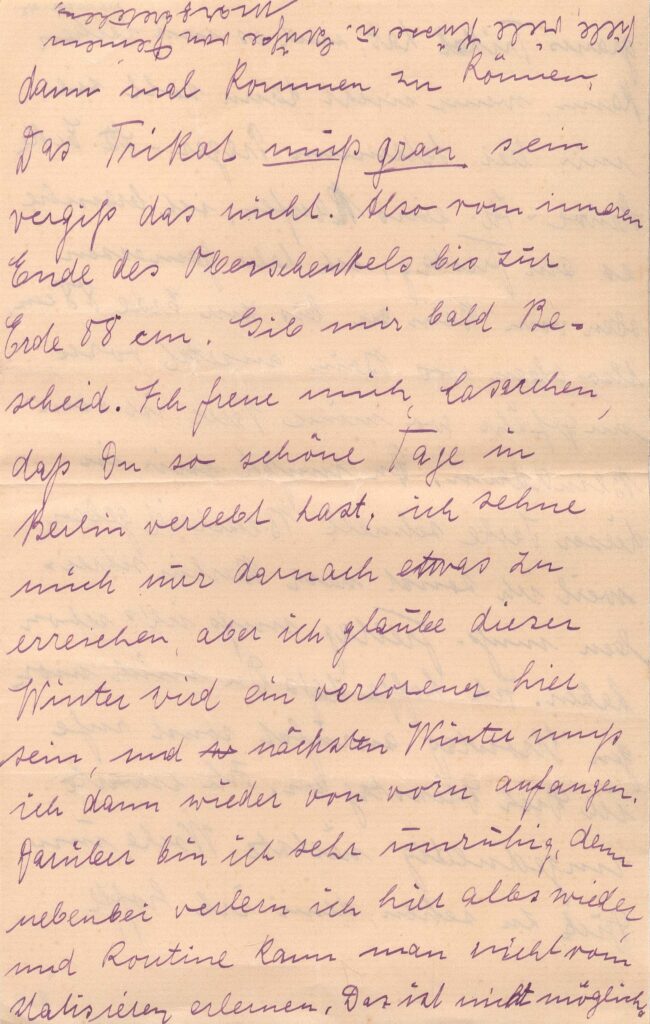 dann mal kommen zu können.
Das Trikot muß grau sein
vergiß das nicht. Also vom inneren
Ende des Oberschenkels bis zur
Erde 88 cm. Gib mir bald Be-
scheid. Ich freue mich,
daß Du so schöne Tage in
Berlin verlebt hast, ich sehne
mich nur darnach etwas zu
erreichen, aber ich glaube dieser
Winter wird ein verlorener hier
sein, und nächsten Winter muß
ich dann wieder von vorn anfangen.
Darüber bin ich sehr unruhig, denn
nebenbei verlern ich hier alles wieder,
und Routine kann man nicht vom
Statisieren erlernen. Das ist nicht möglich.
Viele, viele Küsse u. Grüße von Deinem